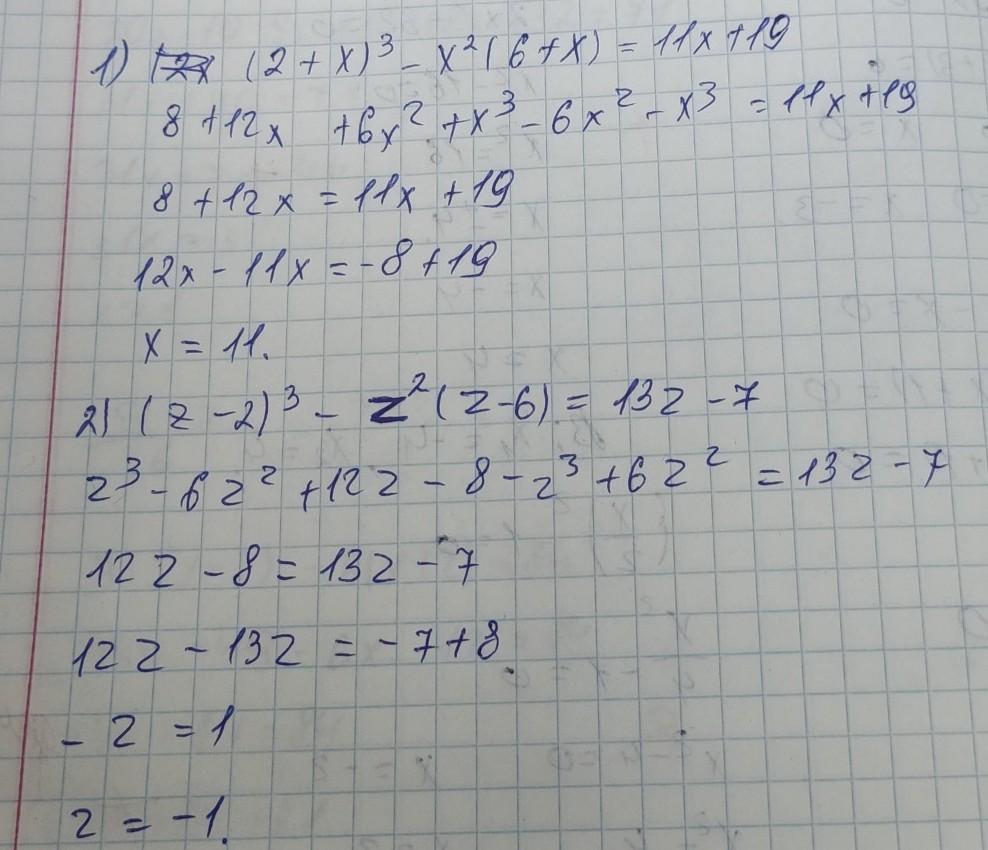 1) (2+x)³ - x²(6+x) = 11x+19
8 +12x +6x² +x³ - 6x² - x³ = 11x+19
8 +12x = 11x +19
12x - 11x = -8 +19
x = 11.
2) (z - 2)³ - z²(z-6) = 13z - 7
z³ - 6z² + 12z - 8 - z³ + 6z² = 13z - 7
12z - 8 = 13z - 7
12z - 13z = -7+8
- z = 1
z = -1.